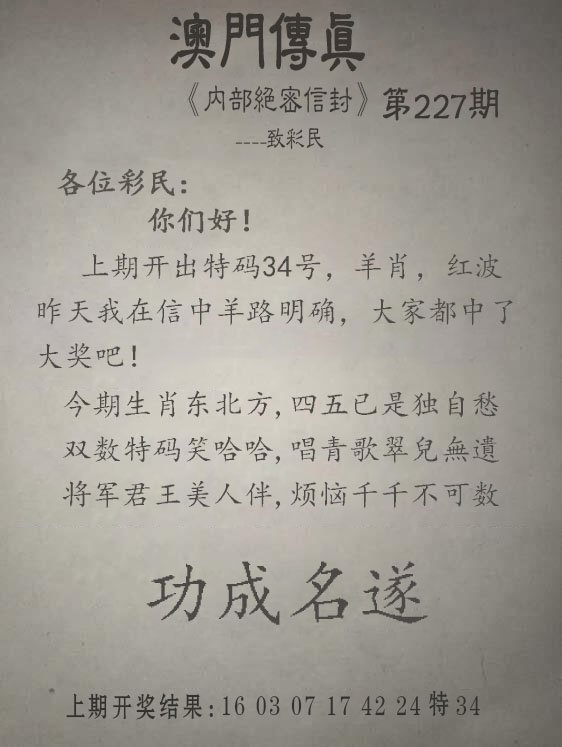 澳門傳真
《内部絕密信封》第227期
----致彩民
各位彩民:
你们好!
上期开出特码34号，羊肖，红波
昨天我在信中羊路明确，大家都中了
大奖吧!
今期生肖东北方,四五已是独自愁
双数特码笑哈哈,唱青歌翠兒無遺
将军君王美人伴,烦恼千千不可数
功成名遂
上期开奖结果:16 03 07 17 42 24 特 34